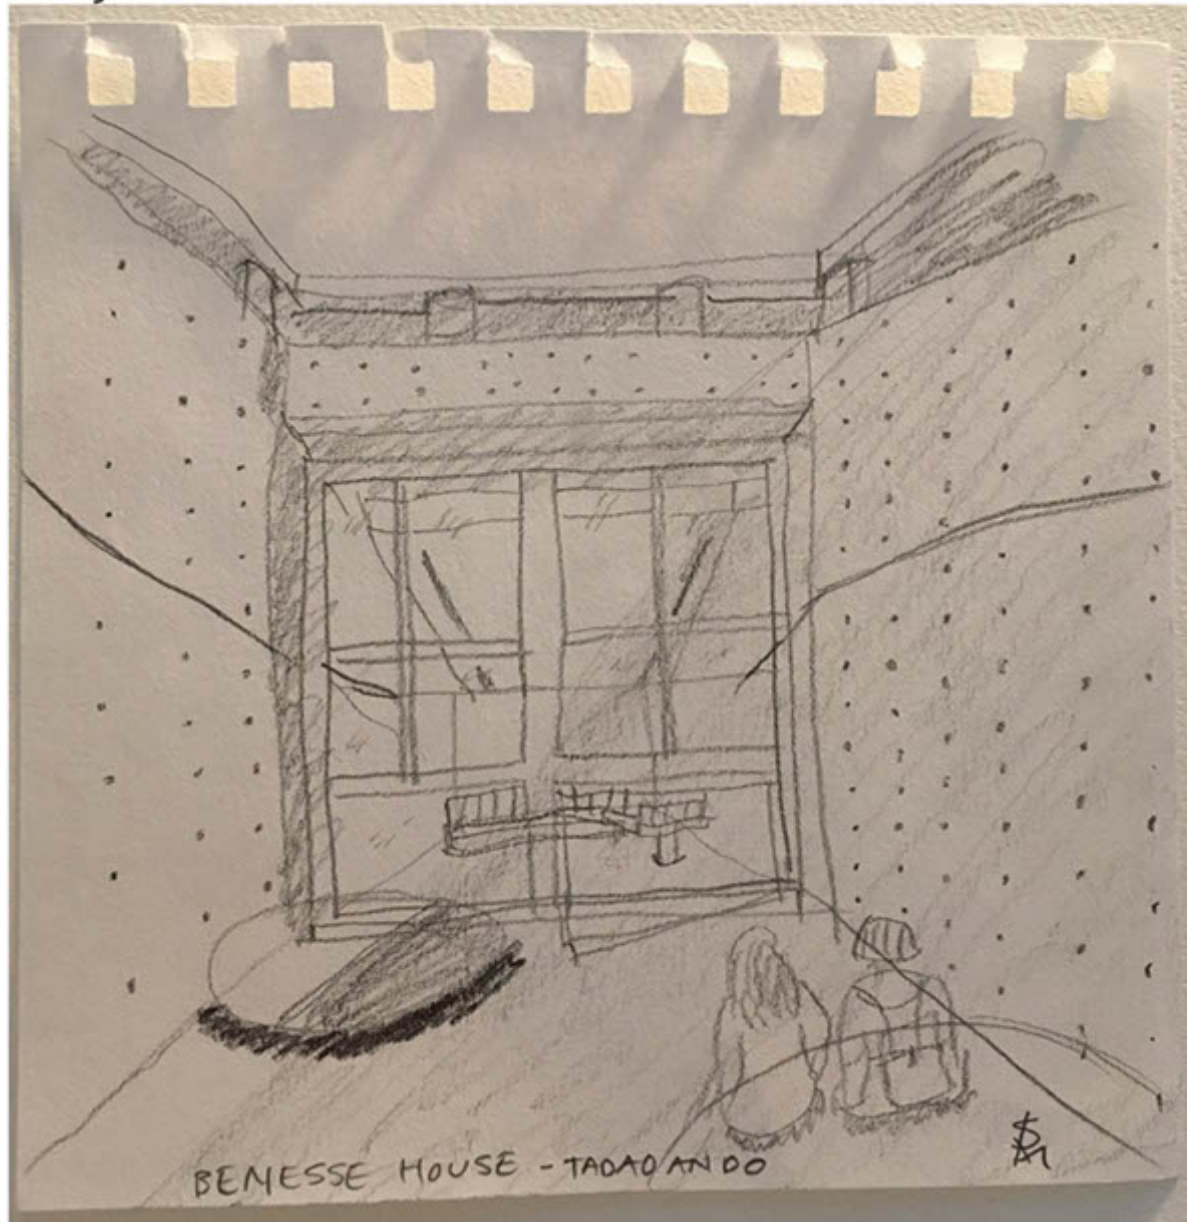 BENESSE HOUSE - TADAO ANDO